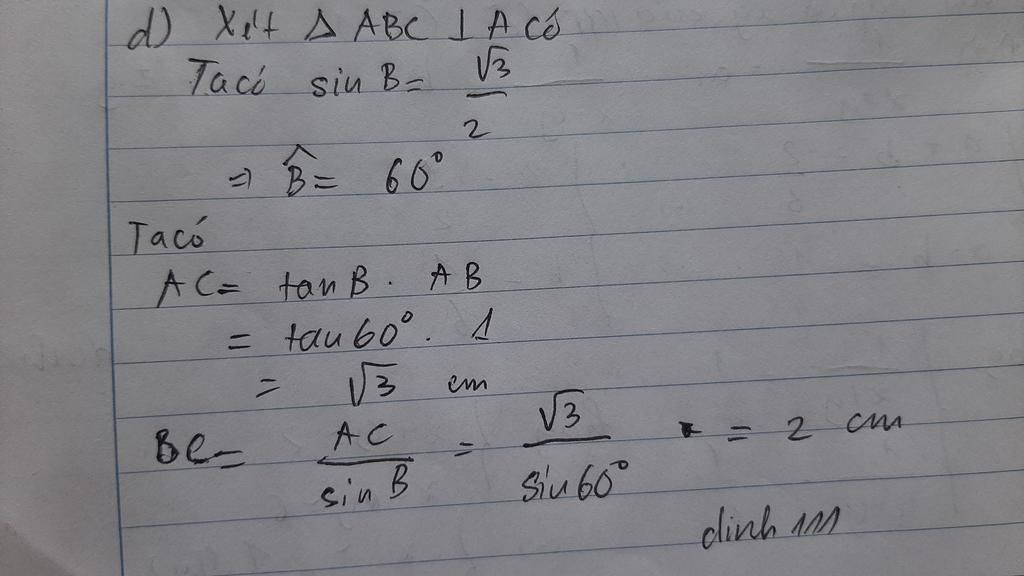 d) Xét Δ ABC ⊥ A có
Ta có sin B = √3/2
⇒ B̂ = 60°
Ta có
AC = tan B . AB
= tan 60° . 1
= √3 cm
BC = AC/sin B = √3/sin 60° = 2 cm
dinh 111